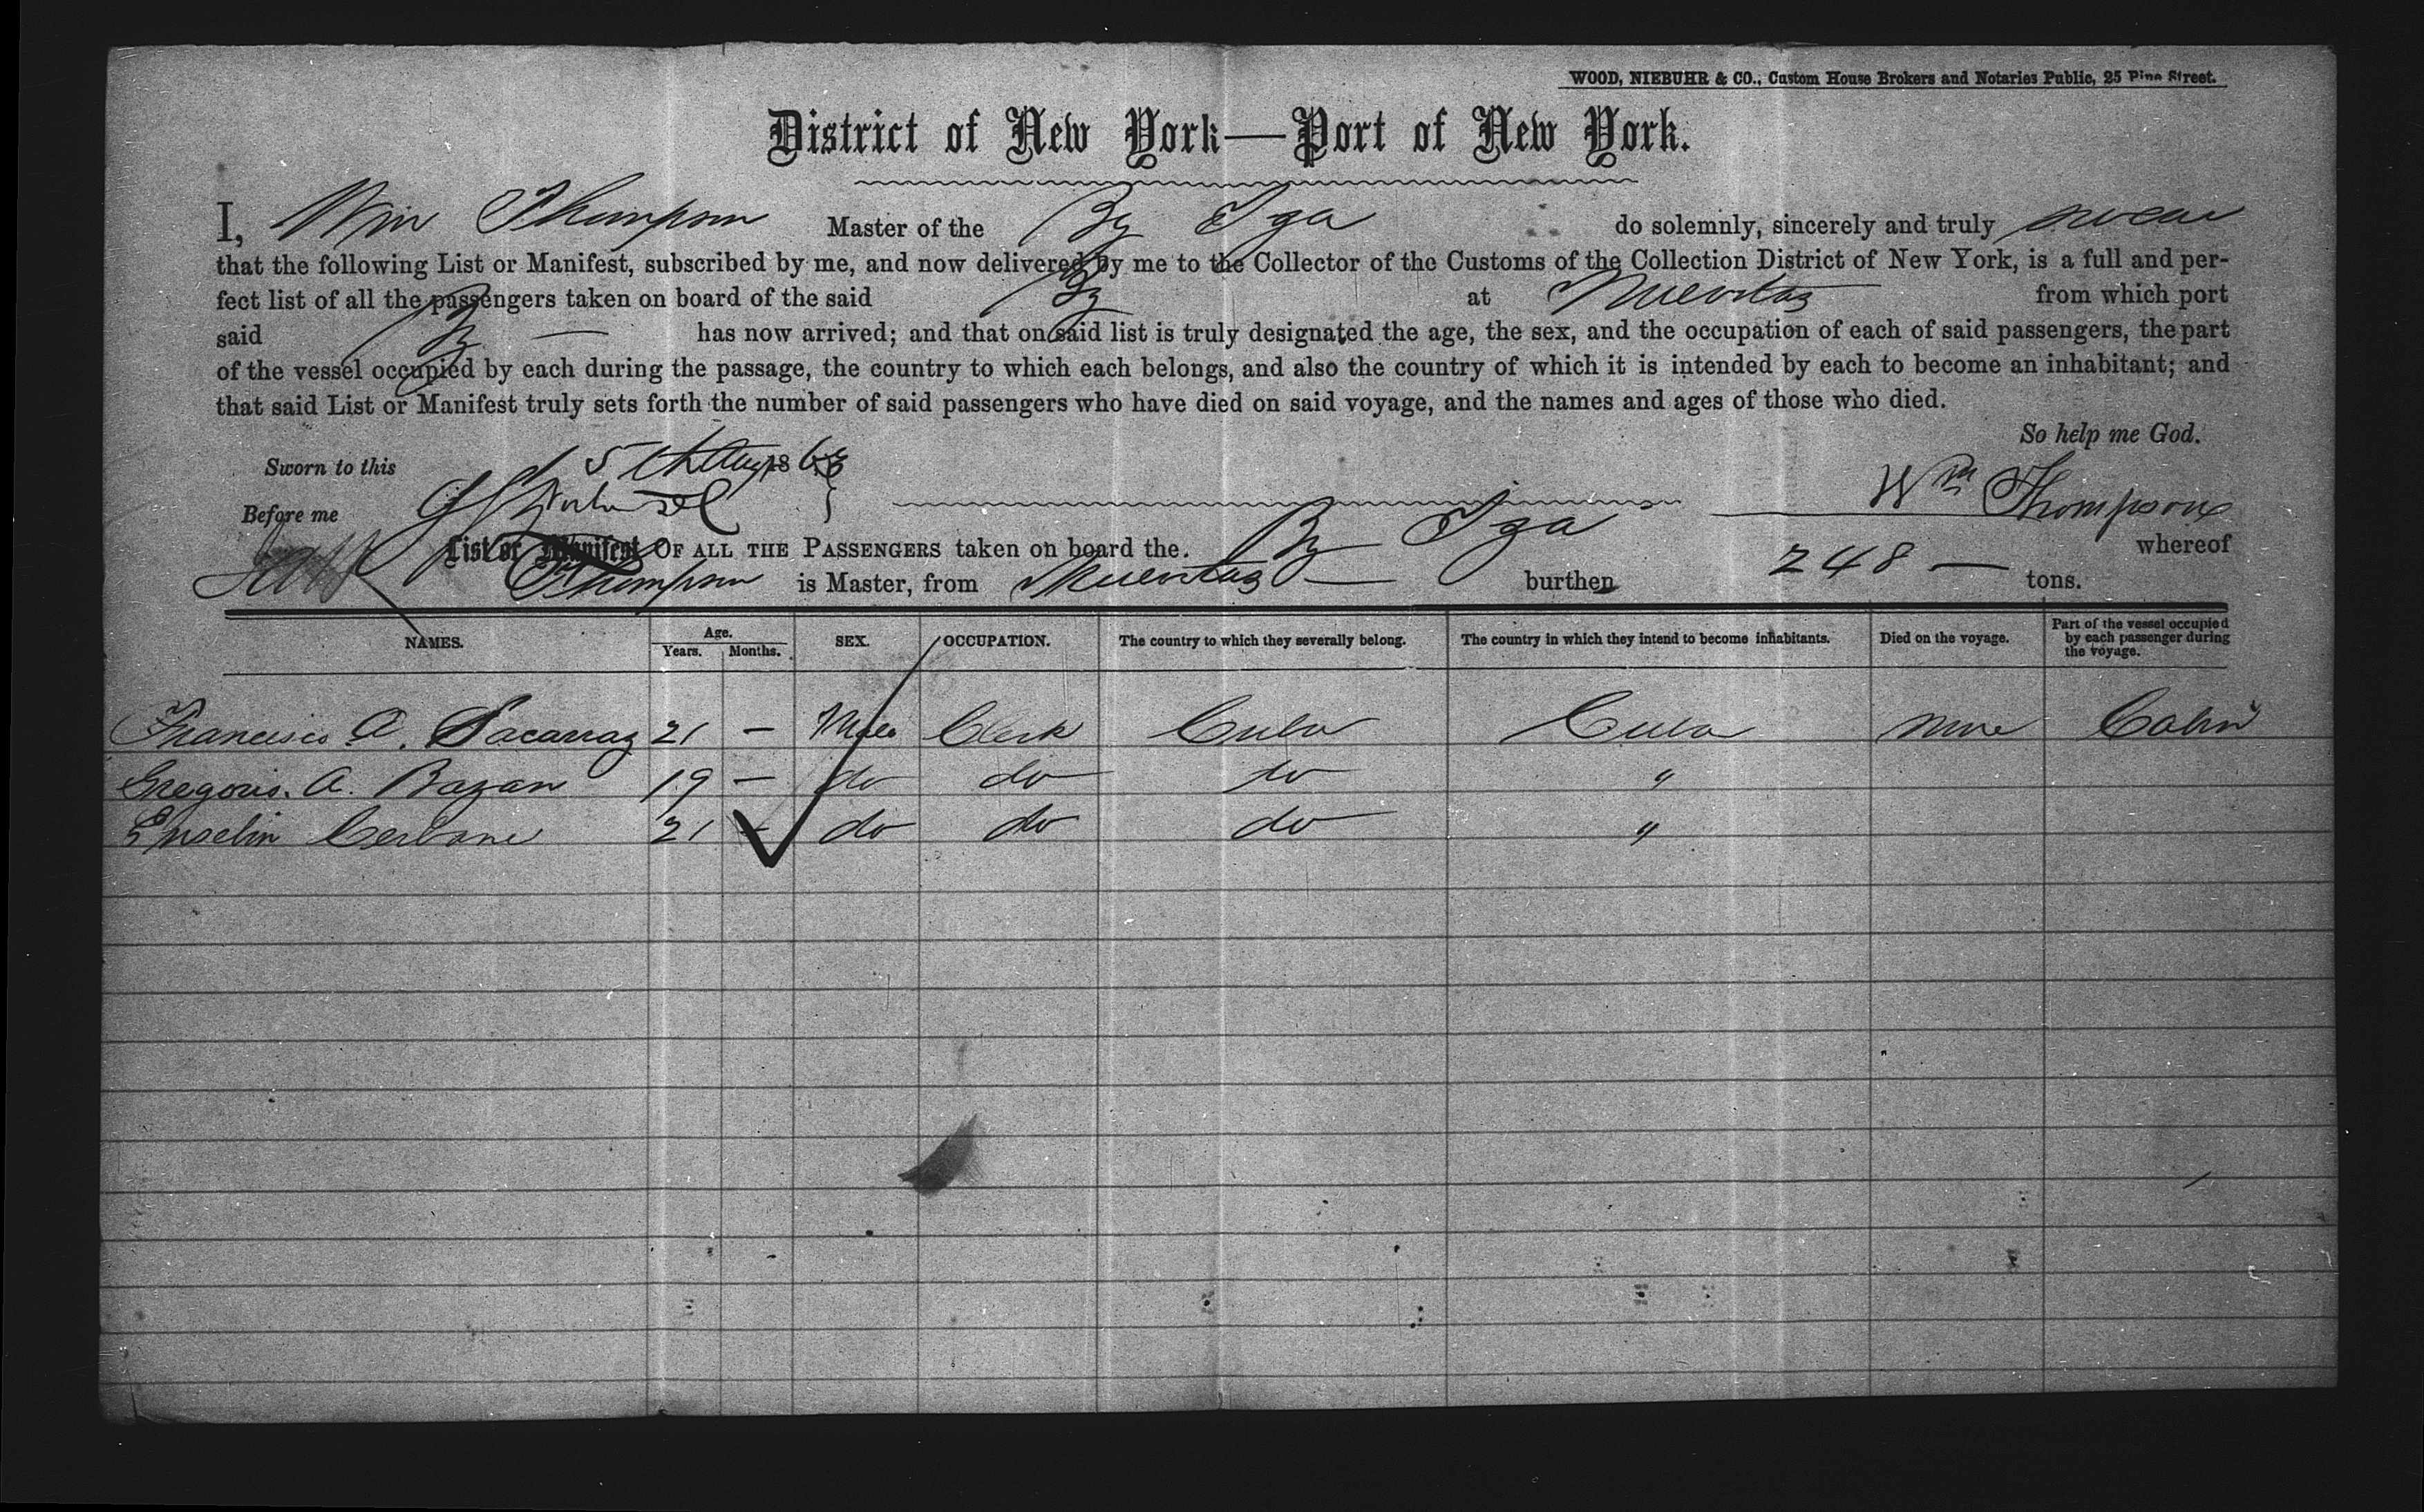 WOOD, NIEBUHR & CO., Custom House Brokers and Notaries Public, 25 Pine Street.
District of New York—Port of New York.
I, Wm Thompson Master of the Bg Iza do solemnly, sincerely and truly swear
that the following List or Manifest, subscribed by me, and now delivered by me to the Collector of the Customs of the Collection District of New York, is a full and per-
fect list of all the passengers taken on board of the said Bg at Nuevitas from which port
said Bg — has now arrived; and that on said list is truly designated the age, the sex, and the occupation of each of said passengers, the part
of the vessel occupied by each during the passage, the country to which each belongs, and also the country of which it is intended by each to become an inhabitant; and
that said List or Manifest truly sets forth the number of said passengers who have died on said voyage, and the names and ages of those who died.
So help me God.
Sworn to this 5th Augt 186
Before me
Wm Thompson
List or Manifest OF ALL THE PASSENGERS taken on board the. Bg Iza whereof
Thompson is Master, from Nuevitas — burthen 248 — tons.
NAMES. Age. Years. Months. SEX. OCCUPATION. The country to which they severally belong. The country in which they intend to become inhabitants. Died on the voyage. Part of the vessel occupied by each passenger during the voyage.
Francisco A. 21 — Male Clerk Cuba Cuba none Cabin
Gregorio. A. Bazan 19 — do do do "
21 — do do do "